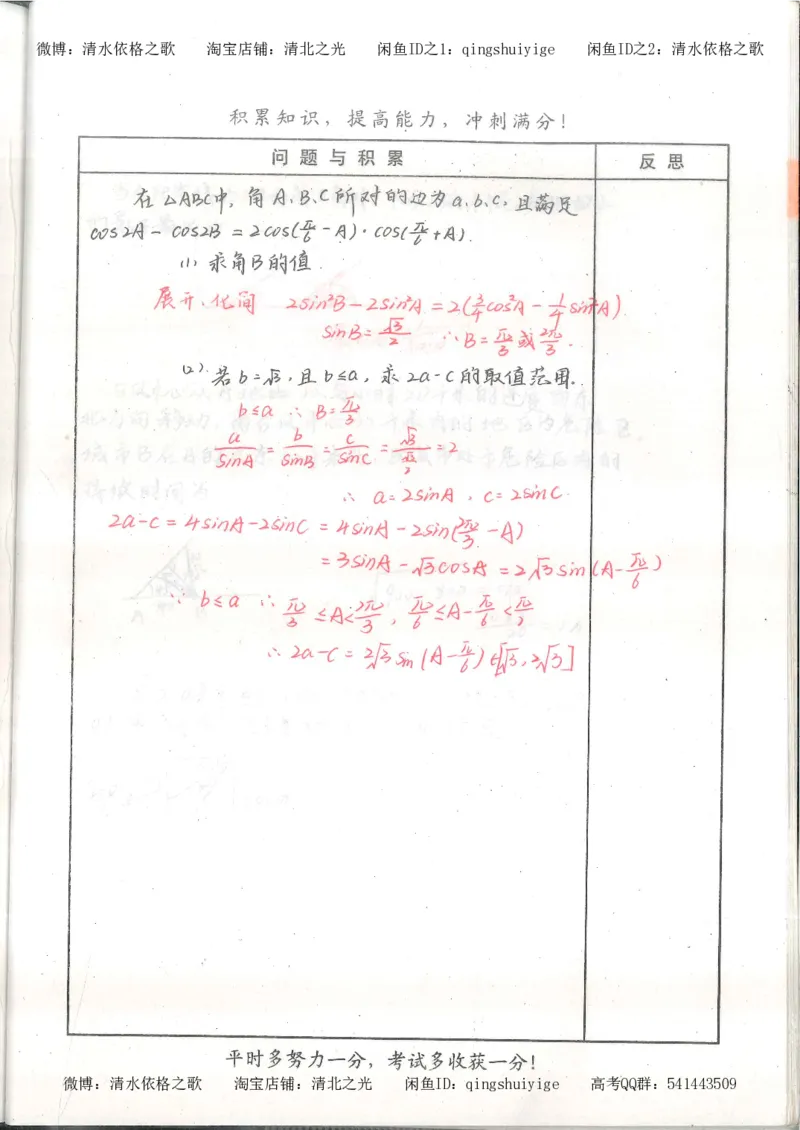 微博：清水依格之歌 淘宝店铺：清北之光 闲鱼ID之1：qingshuiyige 闲鱼ID之2：清水依格之歌
积累知识，提高能力，冲刺满分！
问题与积累 反思
在△ABC中，角A、B、C所对的边为a、b、c，且满足
cos2A - cos2B = 2cos(π/6 - A)·cos(π/6 + A).
(1) 求角B的值.
展开、化间 2sin²B - 2sin²A = 2(3/4 cos²A - 1/4 sin²A).
sinB = √3/2 ∴B = π/3 或 2π/3.
(2) 若b=√3，且b≤a，求2a-c的取值范围.
b≤a ∴ B = π/3
a/sinA = b/sinB = c/sinC = √3/(√3/2) = 2
∴ a = 2sinA，c = 2sinC.
2a-c = 4sinA - 2sinC = 4sinA - 2sin(2π/3 - A)
= 3sinA - √3cosA = 2√3sin(A - π/6)
∵ b≤a ∴ π/3 ≤A< 2π/3，π/6 ≤A - π/6 < π/2
∴ 2a-c = 2√3sin(A - π/6) ∈[√3, 2√3]
平时多努力一分，考试多收获一分！
微博：清水依格之歌 淘宝店铺：清北之光 闲鱼ID：qingshuiyige 高考QQ群：541443509